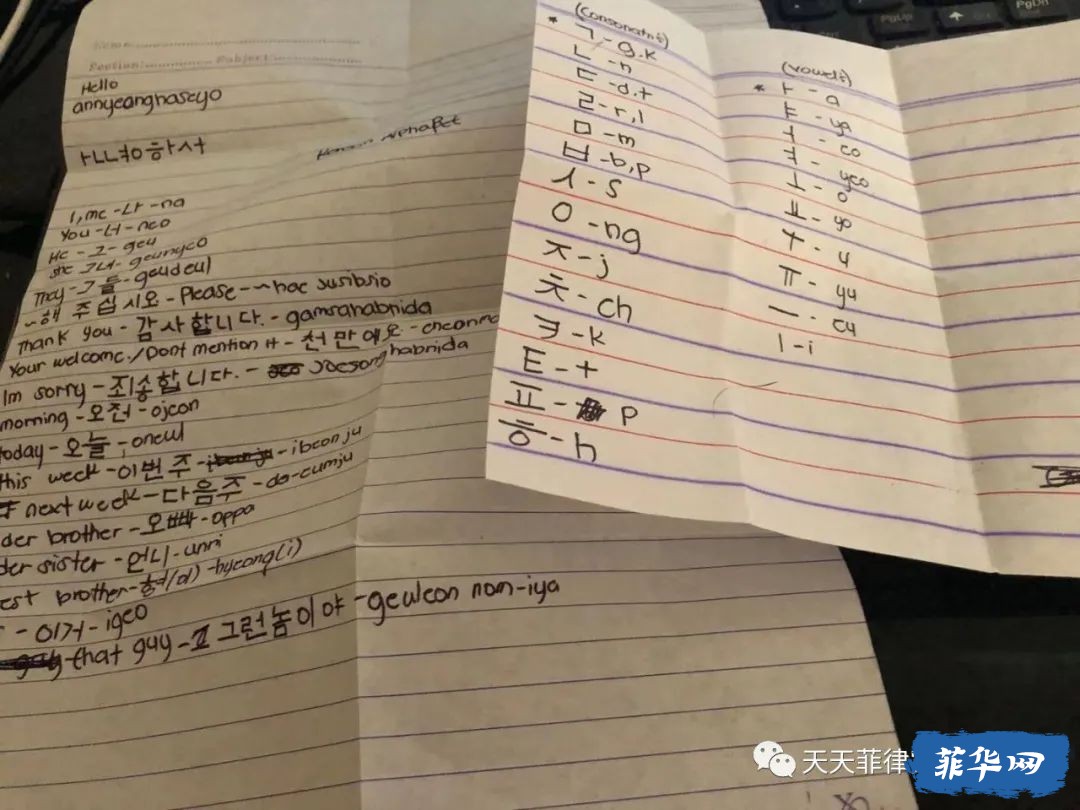 Name
Section: Subject:
Hello
annyeonghaseyo
ㅏㄴㄴㅕㅇㅎㅏㅅㅓ
Korean Alphabet
I, me - 나 - na
You - 너 - neo
He - 그 - geu
she 그녀 - geunyeo
They - 그들 - geudeul
~해 주십시오 - Please - ~hae
Thank you - 감사합니다. - gamsahabnida
Your welcome./Dont mention it - 천만에요 -
Im sorry - 죄송합니다. - joesonghabnida
morning - 오전 - ojeon
today - 오늘 - oneul
this week - 이번 주 - ibeonju
next week - 다음주 - da-eumju
der brother - 오빠 - oppa
der sister - 언니 - unni
est brother - 형/이) - hyeong(i)
- 이거 - igeo
that guy - 그런놈이야 - geuleon nom-iya
(consonant)
* ㄱ - g.k
ㄴ - n
ㄷ - d.t
ㄹ - r,l
ㅁ - m
ㅂ - b,p
ㅅ - s
ㅇ - ng
ㅈ - j
ㅊ - ch
ㅋ - k
ㅌ - t
ㅍ - p
ㅎ - h
(vowels)
* ㅏ - a
ㅑ - ya
ㅓ - eo
ㅕ - yeo
ㅗ - o
ㅛ - yo
ㅜ - u
ㅠ - yu
ㅡ - eu
ㅣ - i
PgUp
PgDn
天天菲律
菲华网